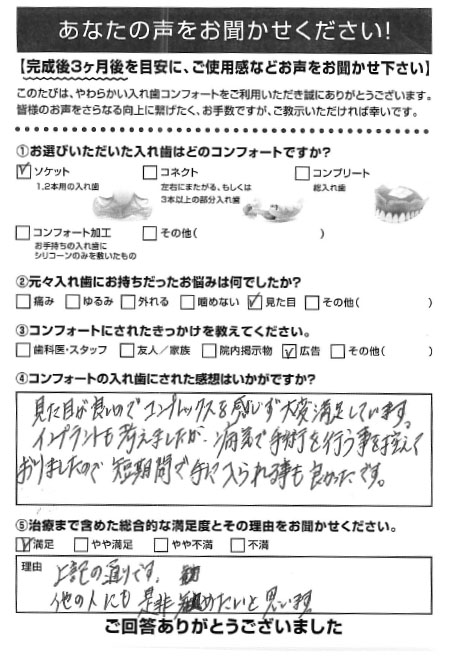 あなたの声をお聞かせください!
【完成後3ヶ月後を目安に、ご使用感などお声をお聞かせ下さい】
このたびは、やわらかい入れ歯コンフォートをご利用いただき誠にありがとうございます。
皆様のお声をさらなる向上に繋げたく、お手数ですが、ご教示いただければ幸いです。
①お選びいただいた入れ歯はどのコンフォートですか?
ソケット コネクト コンプリート
1,2本用の入れ歯 左右にまたがる、もしくは 総入れ歯
3本以上の部分入れ歯
コンフォート加工 その他( )
お手持ちの入れ歯に
シリコーンのみを敷いたもの
②元々入れ歯にお持ちだったお悩みは何でしたか?
痛み ゆるみ 外れる 噛めない 見た目 その他( )
③コンフォートにされたきっかけを教えてください。
歯科医・スタッフ 友人/家族 院内掲示物 広告 その他( )
④コンフォートの入れ歯にされた感想はいかがですか?
見た目が良いのでコンプレックスを感じず大変満足しています。
インプラントも考えましたが、病気で手術を行う事を控えて
おりましたので短期間で手に入られる事も良かったです。
⑤治療まで含めた総合的な満足度とその理由をお聞かせください。
満足 やや満足 やや不満 不満
理由 上記の通りです。
他の人にも是非 めたいと思います
ご回答ありがとうございました